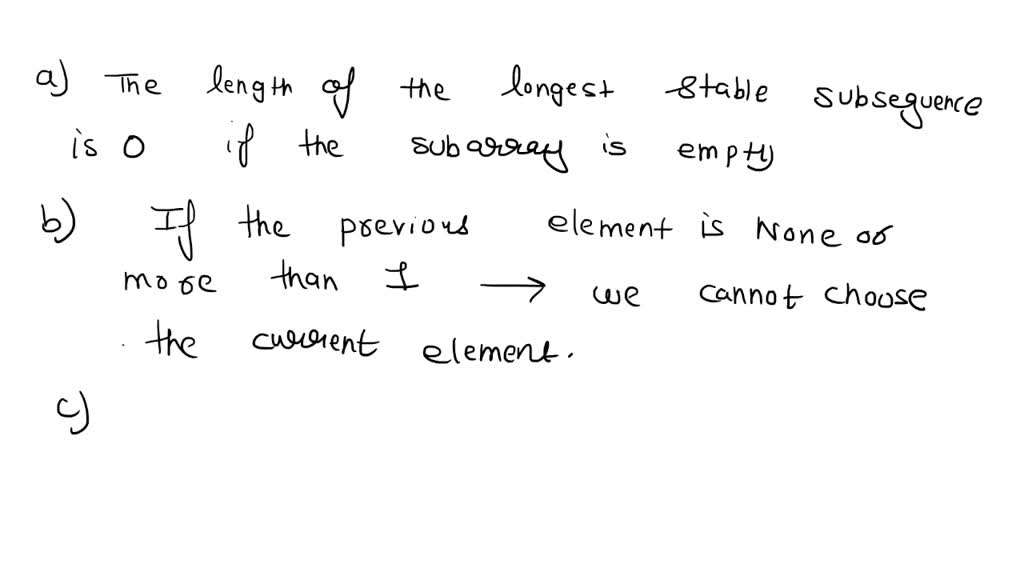 a) The length of the longest stable subsequence
is 0 if the subarray is empty
b) If the previous element is None or
more than I → we cannot choose
. the current element.
c)